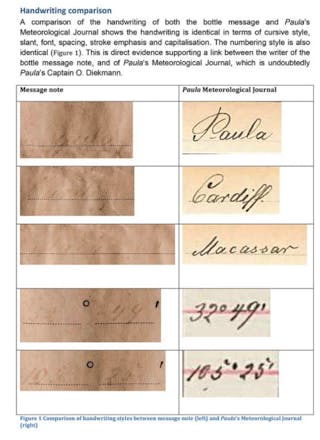 Handwriting comparison
A comparison of the handwriting of both the bottle message and Paula's
Meteorological Journal shows the handwriting is identical in terms of cursive style,
slant, font, spacing, stroke emphasis and capitalisation. The numbering style is also
identical (Figure 1). This is direct evidence supporting a link between the writer of the
bottle message note, and of Paula's Meteorological Journal, which is undoubtedly
Paula's Captain O. Diekmann.
Message note
Paula Meteorological Journal
Paula
Cardiff
Macassar
32°49'
105°25'
Figure 1 Comparison of handwriting styles between message note (left) and Paula's Meteorological Journal
(right)